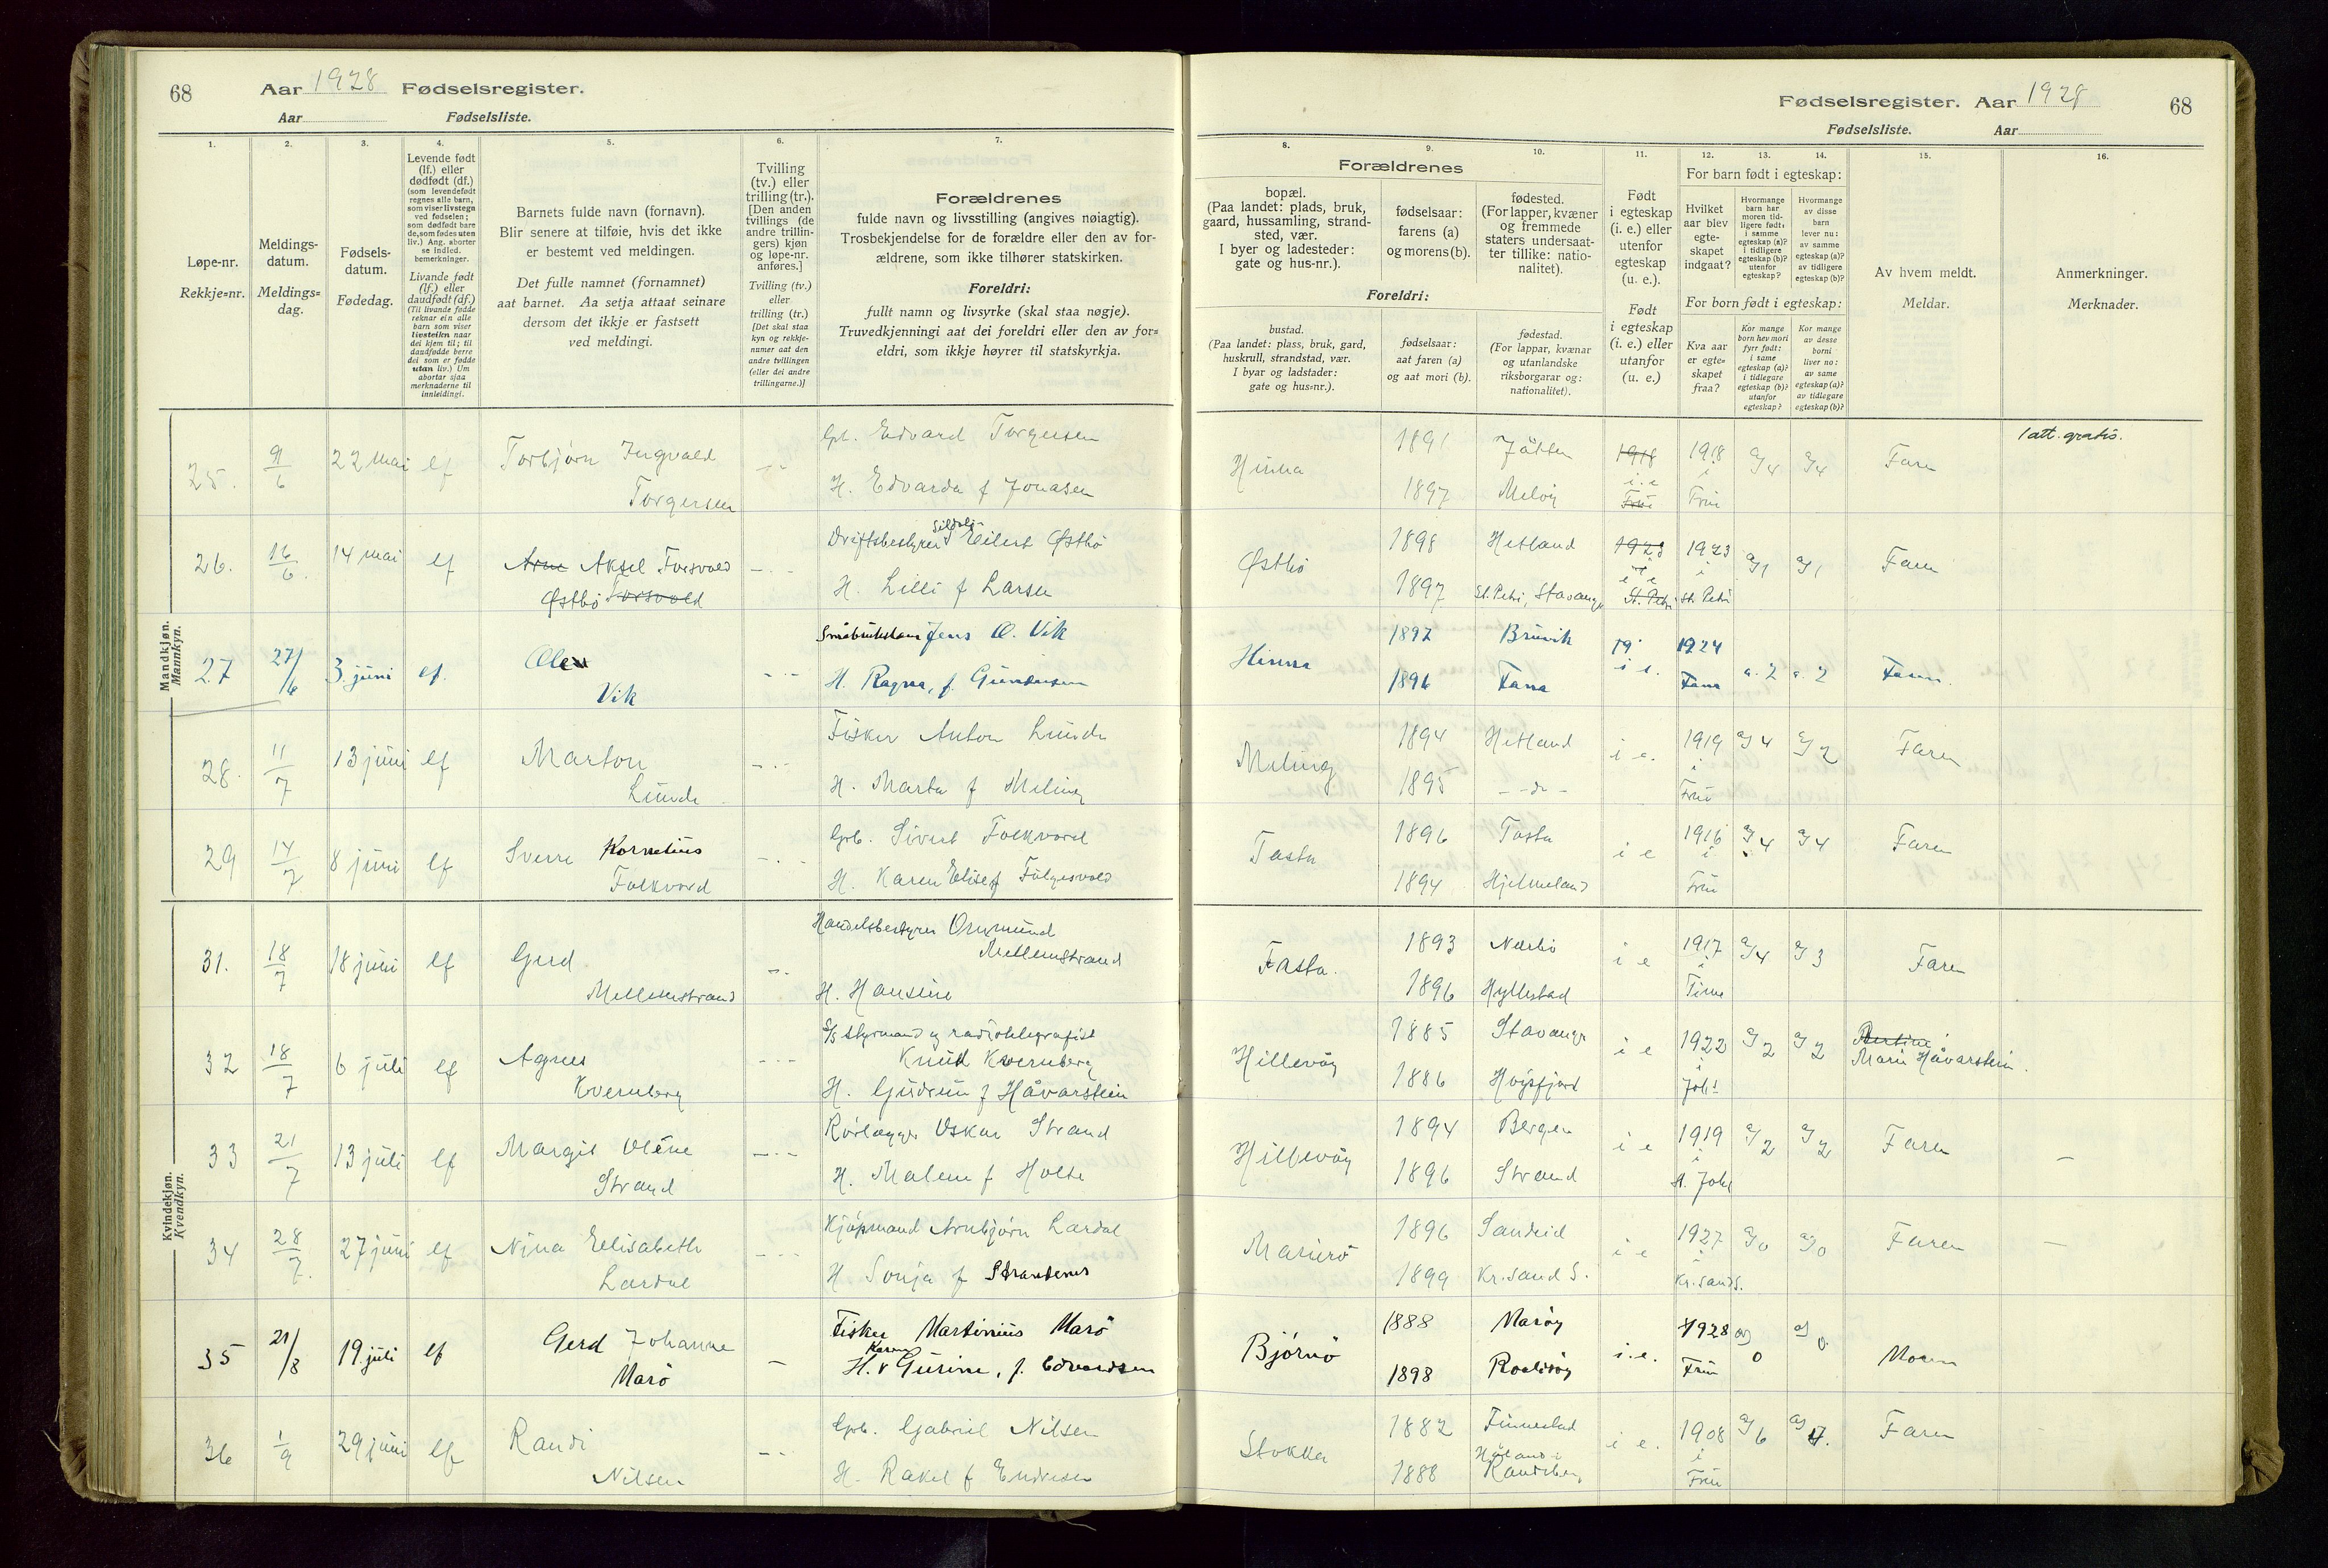 68
Aar 1928 Fødselsregister.
Aar Fødselsliste.
Fødselsregister. Aar 1928
68
Fødselsliste. Aar
1.
Løpe-nr.
Rekkje=nr.
2.
Meldings-
datum.
Meldings=
dag.
3.
Fødsels-
datum.
Fødedag.
4.
Levende født
(lf.) eller
dødfødt (df.)
(som levendefødt
regnes alle barn,
som viser livstegn
ved fødselen;
som dødfødt bare
de, som fødes uten
liv.) Ang. aborter
se indled.
bemerkninger.
Livande født
(lf.) eller
daudfødt (df.)
(Til livande fødde
reknar ein alle
barn som viser
livsteikn naar
dei kjem til; til
daudfødde berre
dei som er fødde
utan liv.) Um
abortar sjaa
merknaderne til
innleidingi.
5.
Barnets fulde navn (fornavn).
Blir senere at tilføie, hvis det ikke
er bestemt ved meldingen.
Det fulle namnet (fornamnet)
aat barnet. Aa setja attaat seinare
dersom det ikkje er fastsett
ved meldingi.
6.
Tvilling
(tv.) eller
trilling (tr.).
[Den anden
tvillings (de
andre trillin-
gers) kjøn
og løpe-nr.
anføres.]
Tvilling (tv.)
eller
trilling (tr.)
[Det skal staa
kyn og rekkje-
numer aat den
andre tvillingen
(eller dei andre
trillingarne.)]
7.
Forældrenes
fulde navn og livsstilling (angives nøiagtig).
Trosbekjendelse for de forældre eller den av for-
ældrene, som ikke tilhører statskirken.
Foreldri:
fullt namn og livsyrke (skal staa nøgje).
Truvedkjenningi aat dei foreldri eller den av for=
eldri, som ikkje høyrer til statskyrkja.
8.
Forældrenes
bopæl.
(Paa landet: plads, bruk,
gaard, hussamling, strand-
sted, vær.
I byer og ladesteder:
gate og hus-nr.).
Foreldri:
bustad.
(Paa landet: plass, bruk, gard,
huskrull, strandstad, vær.
I byar og ladstader:
gate og hus=nr.).
9.
fødselsaar:
farens (a)
og morens (b).
fødselsaar:
aat faren (a)
og aat mori (b).
10.
fødested.
(For lapper, kvæner
og fremmede
staters undersaat-
ter tillike: natio-
nalitet).
fødestad.
(For lappar, kvænar
og utanlandske
riksborgarar og:
nationalitet).
11.
Født
i egteskap
(i. e.) eller
utenfor
egteskap
(u. e.).
Født
i egteskap
(i. e.) eller
utanfor
(u. e.)
12. 13. 14.
For barn født i egteskap:
Hvilket
aar blev
egte-
skapet
indgaat?
Hvormange
barn har
moren tid-
ligere født:
i samme
egteskap (a)?
i tidligere
egteskap (b)?
utenfor
egteskap?
Hvormange
av disse
barn
lever nu:
av samme
egteskap (a)?
av tidligere
egteskap (b)?
For born født i egteskap:
Kva aar
er egte=
skapet
fraa?
Kor mange
born hev mori
fyrr født:
i same
egteskap (a)?
i tidlegare
egteskap (b)?
utanfor
egteskap?
Kor mange
av desse
borni
liver no:
av same
egteskap (a)?
av tidlegare
egteskap (b)?
15.
Av hvem meldt.
Meldar.
16.
Anmerkninger.
Merknader.
Mandkjøn.
Mannkyn.
25. 9/6 22 mai lf Torbjørn Ingvald Torgersen -.- Gbr. Edvard Torgersen
H. Edvarda f Jonasen
Hinna 1891 1897 Jåtten Meløy 1918 i.e Frue 1918 i Frue a/4 a/4 Faren 1 att. gratis.
26. 16/6. 14 mai lf Arne Aksel Torsvald Østbö Torsvald -.- Driftsbestyrer Eilert Østbö
H. Lilli f Larsen
Østbö 1898 1897 Hetland St. Petri, Stavanger 1923 i e St. Petri 1923 i St. Petri a/1 a/1 Faren
27 27/6 3. juni lf. Olav Vik -.- Småbrukstam Jens O. Vik
H. Ragna, f. Gundersen
Hinna 1897 1896 Bruvik Fana 19 i e. 1924 Fana a. 2 a. 2 Faren.
28. 11/7 13 juni lf Marton Lunde -.- Fisker Anton Lunde
H. Marta f Meling
Meling 1894 1895 Hetland - do - i e. 1919 i Frue a/4 a/2 Faren
29 14/7 8 juni lf Sverre Kornelius Folkvord -.- Gbr. Sivert Folkvord
H. Karen Elise f Fulgesvold
Tasta 1896 1894 Tasta Hjelmeland i e 1916 i Frue a/4 a/4 Faren
Kvindekjøn.
Kvendkyn.
31. 18/7 18 juni lf Gerd Mellemstrand -.- Handelsbestyrer Ommund Mellemstrand
H. Hansine
Tasta. 1893 1896 Nærbö Hyllestad i e 1917 i Time a/4 a/3 Faren
32 18/7 6 juli lf Agnes Kvernberg -.- S/S styrmand og radiotelegrafist
Knut Kvernberg
H. Gudrun f Håvarstein
Hillevåg 1885 1886 Stavanger Høgsfjord i e 1922 i Joh! a/2 a/2 Bertine Marie Håvarstein.
33 21/7 13 juli lf Margit Olene Strand -.- Rørlægger Oskar Strand
H. Malene f Holte
Hillevåg 1894 1896 Bergen Strand i e 1919 i St. Joh a/2 a/2 Faren -
34 28/7. 27 juni lf Nina Elisabeth Lardal -.- Kjøpmand Arnbjørn Lardal
H Sonja f Strandenes
Mariero 1896 1899 Sandeid Kr. sand S. i e 1927 i Kr. sand S. a/0 a/0 Faren -
35 21/8 19. juli lf Gerd Johanne Marö - Fisker Martinius Marö
H. Karen Gurine, f. Edvardsen
Bjørnö 1888 1898 Marøy Roaldsøy i. e. 1928 Frue a/0 a/0. Moren
36 1/9 29 juni lf Randi Nilsen -- Gbr. Gabriel Nilsen
H. Rakel f Endresen
Stokka 1882 1888 Finnestad Høland i Randeberg i e. 1908 i Frue a/6 Faren